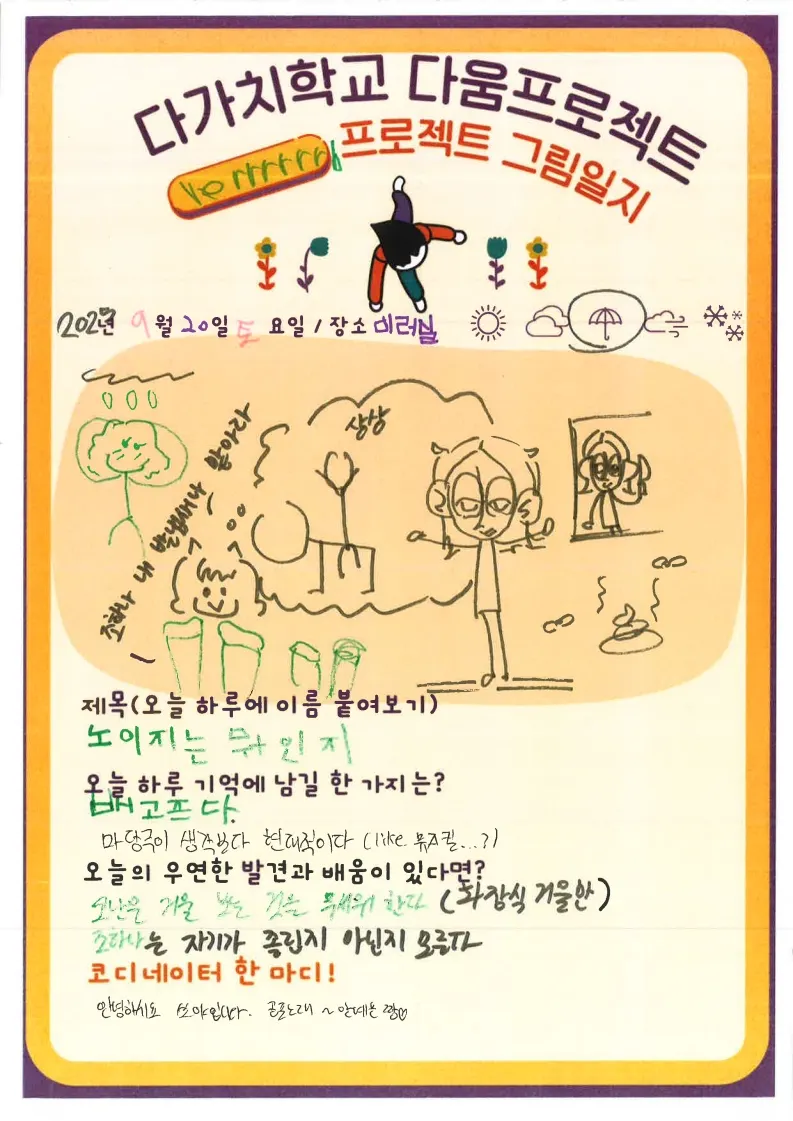 다가치학교 다움프로젝트
프로젝트 그림일지
2025년 9월 20일 토 요일 / 장소 미러실
상상
조하나 내 발냄새나 맡아라
제목(오늘 하루에 이름 붙여보기)
노이지는 뭐인지
오늘 하루 기억에 남길 한 가지는?
배고프다.
마당극이 생각보다 현대적이다 (like 뮤지컬...?)
오늘의 우연한 발견과 배움이 있다면?
소난은 거울 보는 것을 무서워 한다 (화장실 거울만)
조하나는 자기가 졸린지 아닌지 모른다
코디네이터 한 마디!
안녕하시오 쏘야입니다.